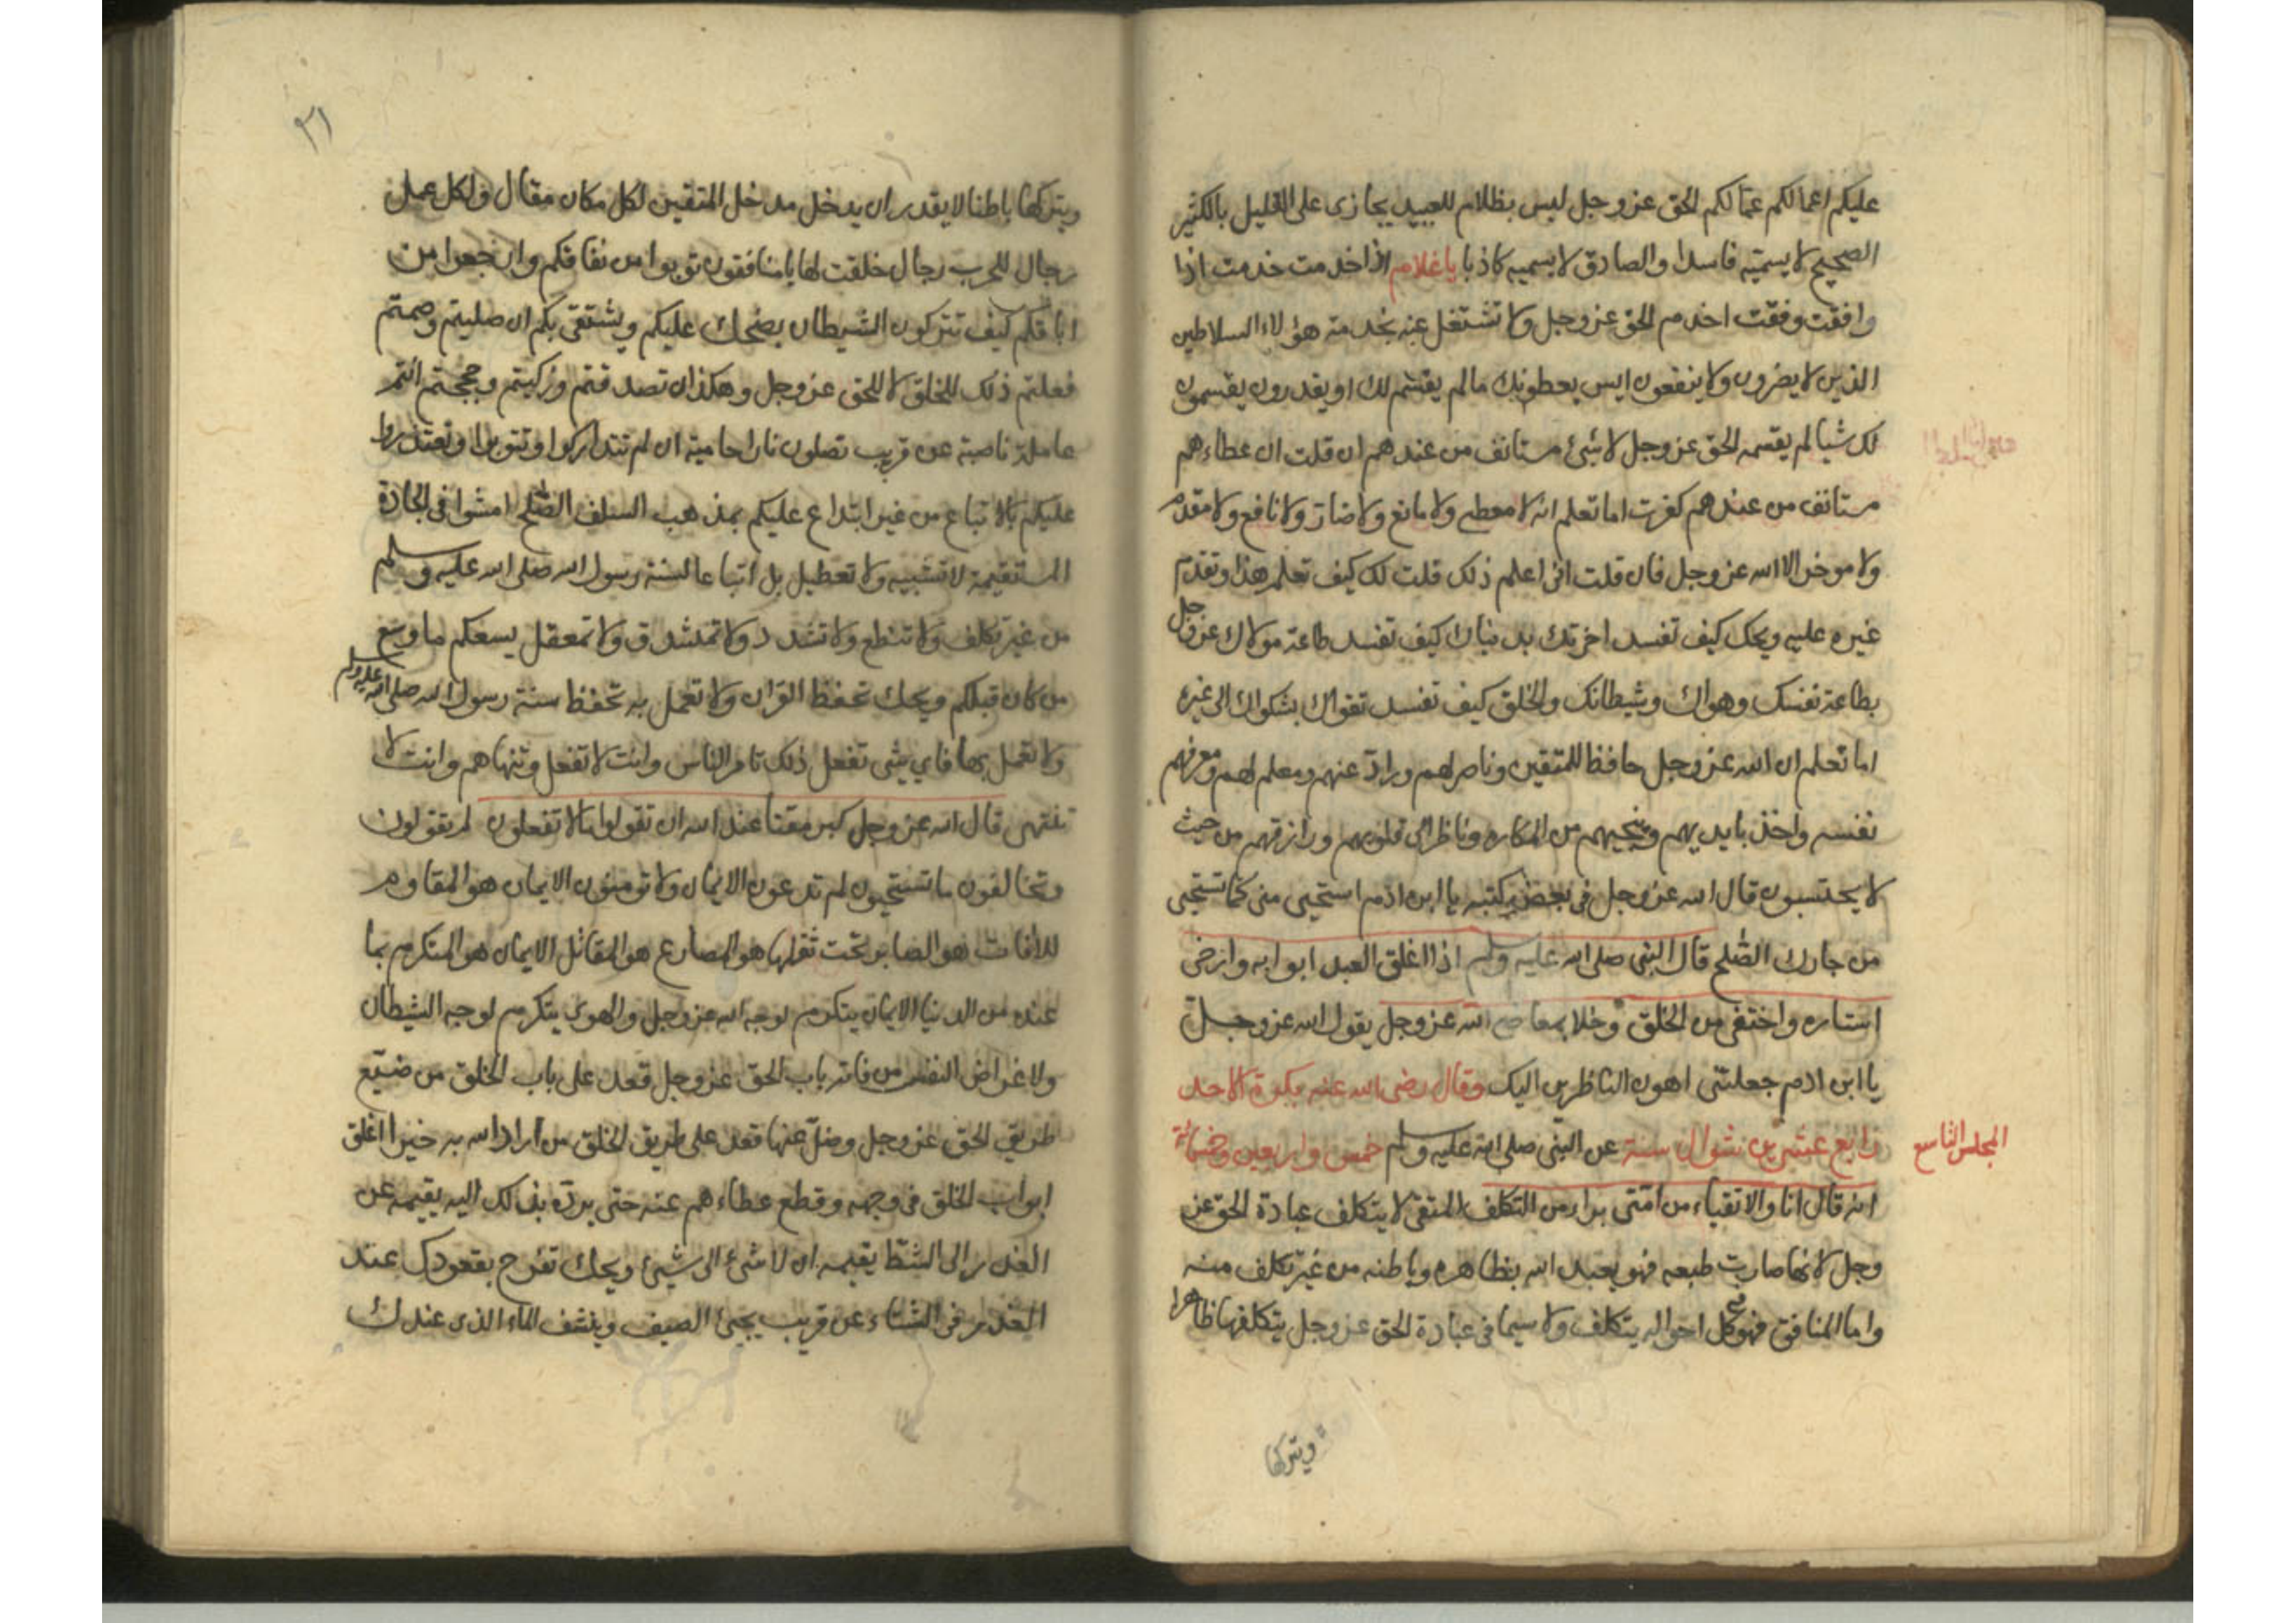 عليكم اعمالكم عمالكم الحق عز وجل ليس بظلام للعبيد يجازى على القليل بالكثير
الصحيح لا يسميه فاسدا والصادق لا يسميه كاذبا يا غلام اذا خدمت خدمت اذا
وافقت وفقت اخدم الحق عز وجل ولا تشتغل عنه بخدمة هؤلاء السلاطين
الذين لا يضرون ولا ينفعون ايس يعطونك مالم يقسم لك او يقدرون يقسمون
لك شيا لم يقسمه الحق عز وجل لا شئ مستانف من عندهم ان قلت ان عطاءهم
مستانف من عندهم كفرت اما تعلم انه لا معطى ولا مانع ولا ضار ولا نافع ولا مقدم
ولا موخر الا الله عز وجل فان قلت انى اعلم ذلك قلت لك كيف تعلم هذا وتقدم
غيره عليه ويحك كيف تفسد اخرتك بدنياك كيف تفسد طاعة مولاك عز وجل
بطاعة نفسك وهواك وشيطانك والخلق كيف تفسد تقواك بشكواك الى غيره
اما تعلم ان الله عز وجل حافظ للمتقين وناصر لهم وراد عنهم ومعلم لهم ومعرفهم
نفسه واخذ بايديهم وينجيهم من المكاره وناظر الى قلوبهم ورازقهم من حيث
لا يحتسبون قال الله عز وجل فى بعض كتبه يا ابن ادم استحيى منى كما تستحيى
من جارك الصلح قال النبى صلى الله عليه وسلم اذا اغلق العبد ابوابه وارخى
استاره واختفى من الخلق وخلا بمعاصى الله عز وجل يقول الله عز وجل
يا ابن ادم جعلتنى اهون الناظرين اليك وقال رضى الله عنه بكرة الاحد
المجلس التاسع
رابع عشرين شوال سنة عن النبى صلى الله عليه وسلم خمس واربعين وخمسمائة
انه قال انا والاتقياء من امتى براء من التكلف المتقى لا يتكلف عبادة الحق عز
وجل لانها صارت طبعه فهو يعبد الله بظاهره وباطنه من غير تكلف منه
واما المنافق فهو فى كل احواله يتكلف ولا سيما فى عبادة الحق عز وجل يتكلفها ظاهرا
ويتركها
٣١
ويتركها باطنا لا يقدر ان يدخل مدخل المتقين لكل مكان مقال ولكل عمل
رجال للحرب رجال خلقت لها يا منافقون توبوا من نفاقكم وارجعوا من
اباقكم كيف تتركون الشيطان يضحك عليكم ويشتفى بكم ان صليتم وصمتم
فعلتم ذلك للخلق لا للحق عز وجل وهكذا ان تصدقتم وزكيتم وحججتم انتم
عاملة ناصبة عن قريب تصلون نارا حامية ان لم تتداركوا وتتوبوا وتعتذروا
عليكم بالاتباع من غير ابتداع عليكم بمذهب السلف الصلح امشوا فى الجادة
المستقيمة لا تشبيه ولا تعطيل بل اتباعا لسنة رسول الله صلى الله عليه وسلم
من غير تكلف ولا تنطع ولا تشدد ولا تمشدق ولا تمعقل يسعكم ما وسع
من كان قبلكم ويحك تحفظ القران ولا تعمل به تحفظ سنة رسول الله صلى الله عليه وسلم
ولا تعمل بها فاى شى تفعل ذلك تامر الناس وانت لا تفعل وتنهاهم وانت لا
تنتهى قال الله عز وجل كبر مقتا عند الله ان تقولوا مالا تفعلون لم تقولون
وتخالفون ما تستحيون لم تدعون الايمان ولا تومنون الايمان هو المقاوم
للافات هو الصابر تحت ثقلها هو المصارع هو المقاتل الايمان هو المتكرم بما
عنده من الدنيا الايمان يتكرم لوجه الله عز وجل والهوى يتكرم لوجه الشيطان
ولاغراض النفس من فاته باب الحق عز وجل قعد على باب الخلق من ضيع
طريق الحق عز وجل وضل عنها قعد على طريق الخلق من اراد الله به خيرا اغلق
ابواب الخلق فى وجهه وقطع عطاءهم عنه حتى يرده بذلك اليه يقيمه عن
الغدر الى الشط يقيمه ان لا شئ الى شيئ ويحك تفرح بقعودك عند
الغدر فى الشتاء عن قريب يجئ الصيف وينشف الماء الذى عندك